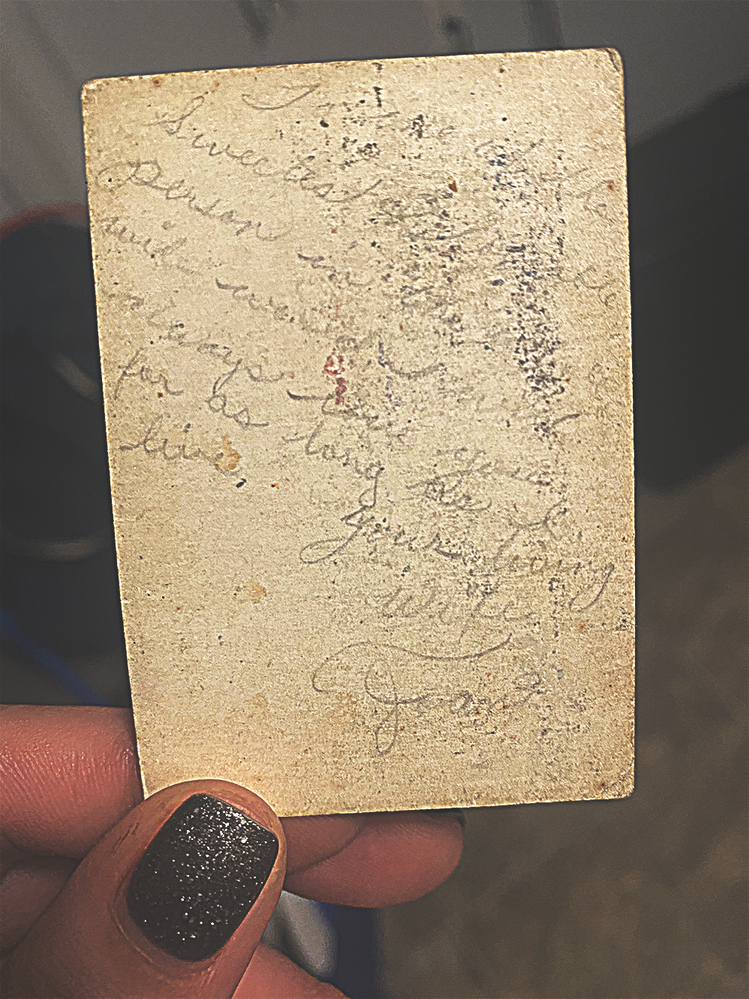 To the
Sweetest
person in the
wide world
always love you
for as long as I
live.
Your loving
Wife
Joan